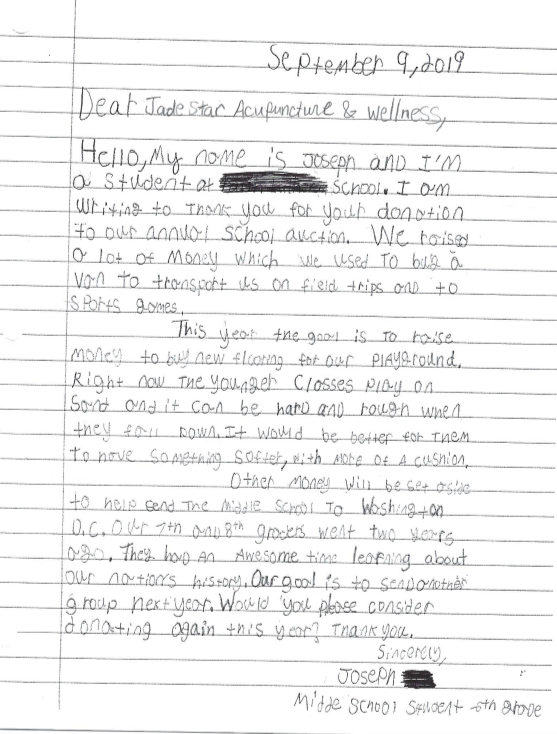 September 9, 2019
Dear Jade Star Acupuncture & Wellness,
Hello, My name is Joseph and I'm
a student at School. I am
writing to thank you for your donation
to our annual school auction. We raised
a lot of money which we used to buy a
van to transport us on field trips and to
sports games.
This year the goal is to raise
money to buy new flooring for our playground.
Right now the younger classes play on
sand and it can be hard and rough when
they fall down. It would be better for them
to have something softer, with more of a cushion.
Other money will be set aside
to help send the middle school to Washington
D.C. Our 7th and 8th graders went two years
ago. They had an awesome time learning about
our nation's history. Our goal is to send another
group next year. Would you please consider
donating again this year? Thank you.
Sincerely,
Joseph
Middle School Student 6th grade